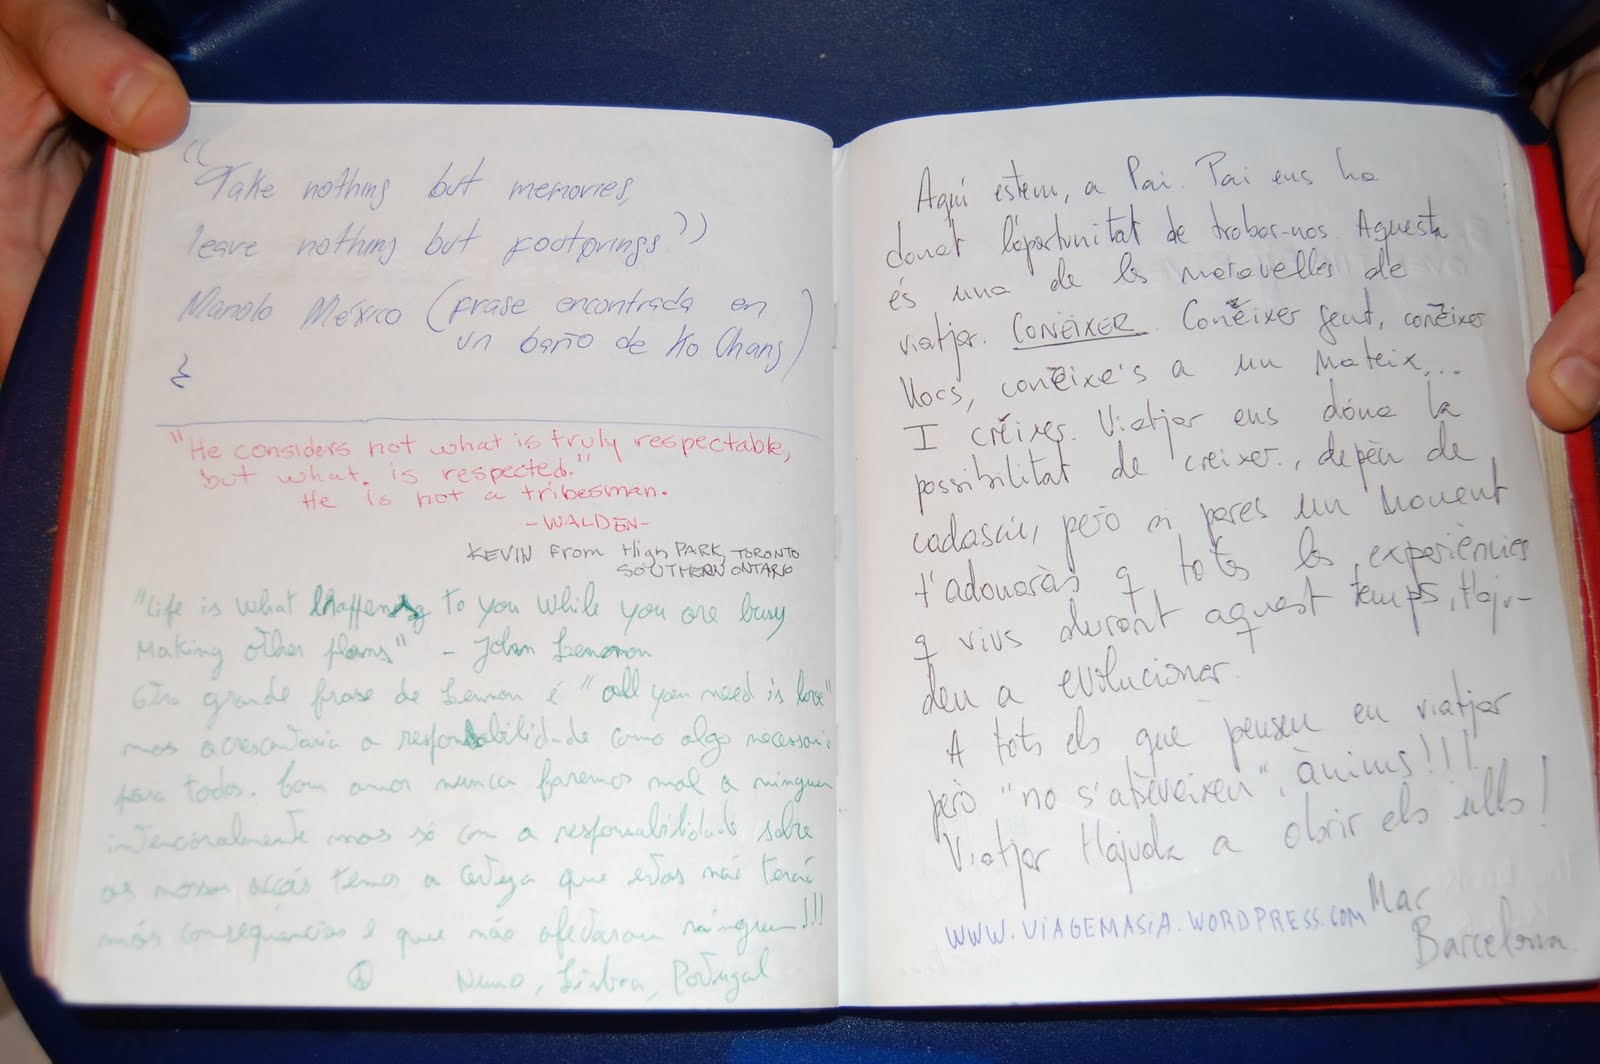 "Take nothing but memories,
leave nothing but footprings"
Manolo México (frase encontrada en
un baño de Ko Chang)
"He considers not what is truly respectable,
but what is respected."
He is not a tribesman.
-WALDEN-
KEVIN From High PARK, TORONTO
SOUTHERN ONTARIO
"Life is what happens to you while you are busy
Making other plans" - John Lennon
Otra grande frase de Lennon é "all you need is love"
mas acrescentaria a responsabilidade como algo necessario
para todos. Com amor nunca faremos mal a ninguem
intencionalmente mas só com a responsabilidade sobre
as nossas acções temos a certeza que estas não terão
más consequências e que não afectaram ninguem!!!
Nuno, Lisboa, Portugal
Aquí estem, a Pai. Pai ens ha
donat l'oportunitat de trobar-nos. Aquesta
és una de les meravelles de
viatjar. CONÈIXER. Conèixer gent, conèixer
llocs, conèixe's a un mateix...
I créixer. Viatjar ens dóna la
possibilitat de creixer., depèn de
cadascú, però si pares un moment
t'adonaràs q totes les experiències
q vius durant aquest temps, t'aju-
den a evolucionar.
A tots els que pensen en viatjar
però "no s'atèveixen", ànims!!!
Viatjar t'ajuda a obrir els ulls!
Mac
WWW.VIAGEMASIA.WORDPRESS.COM
Barcelona.